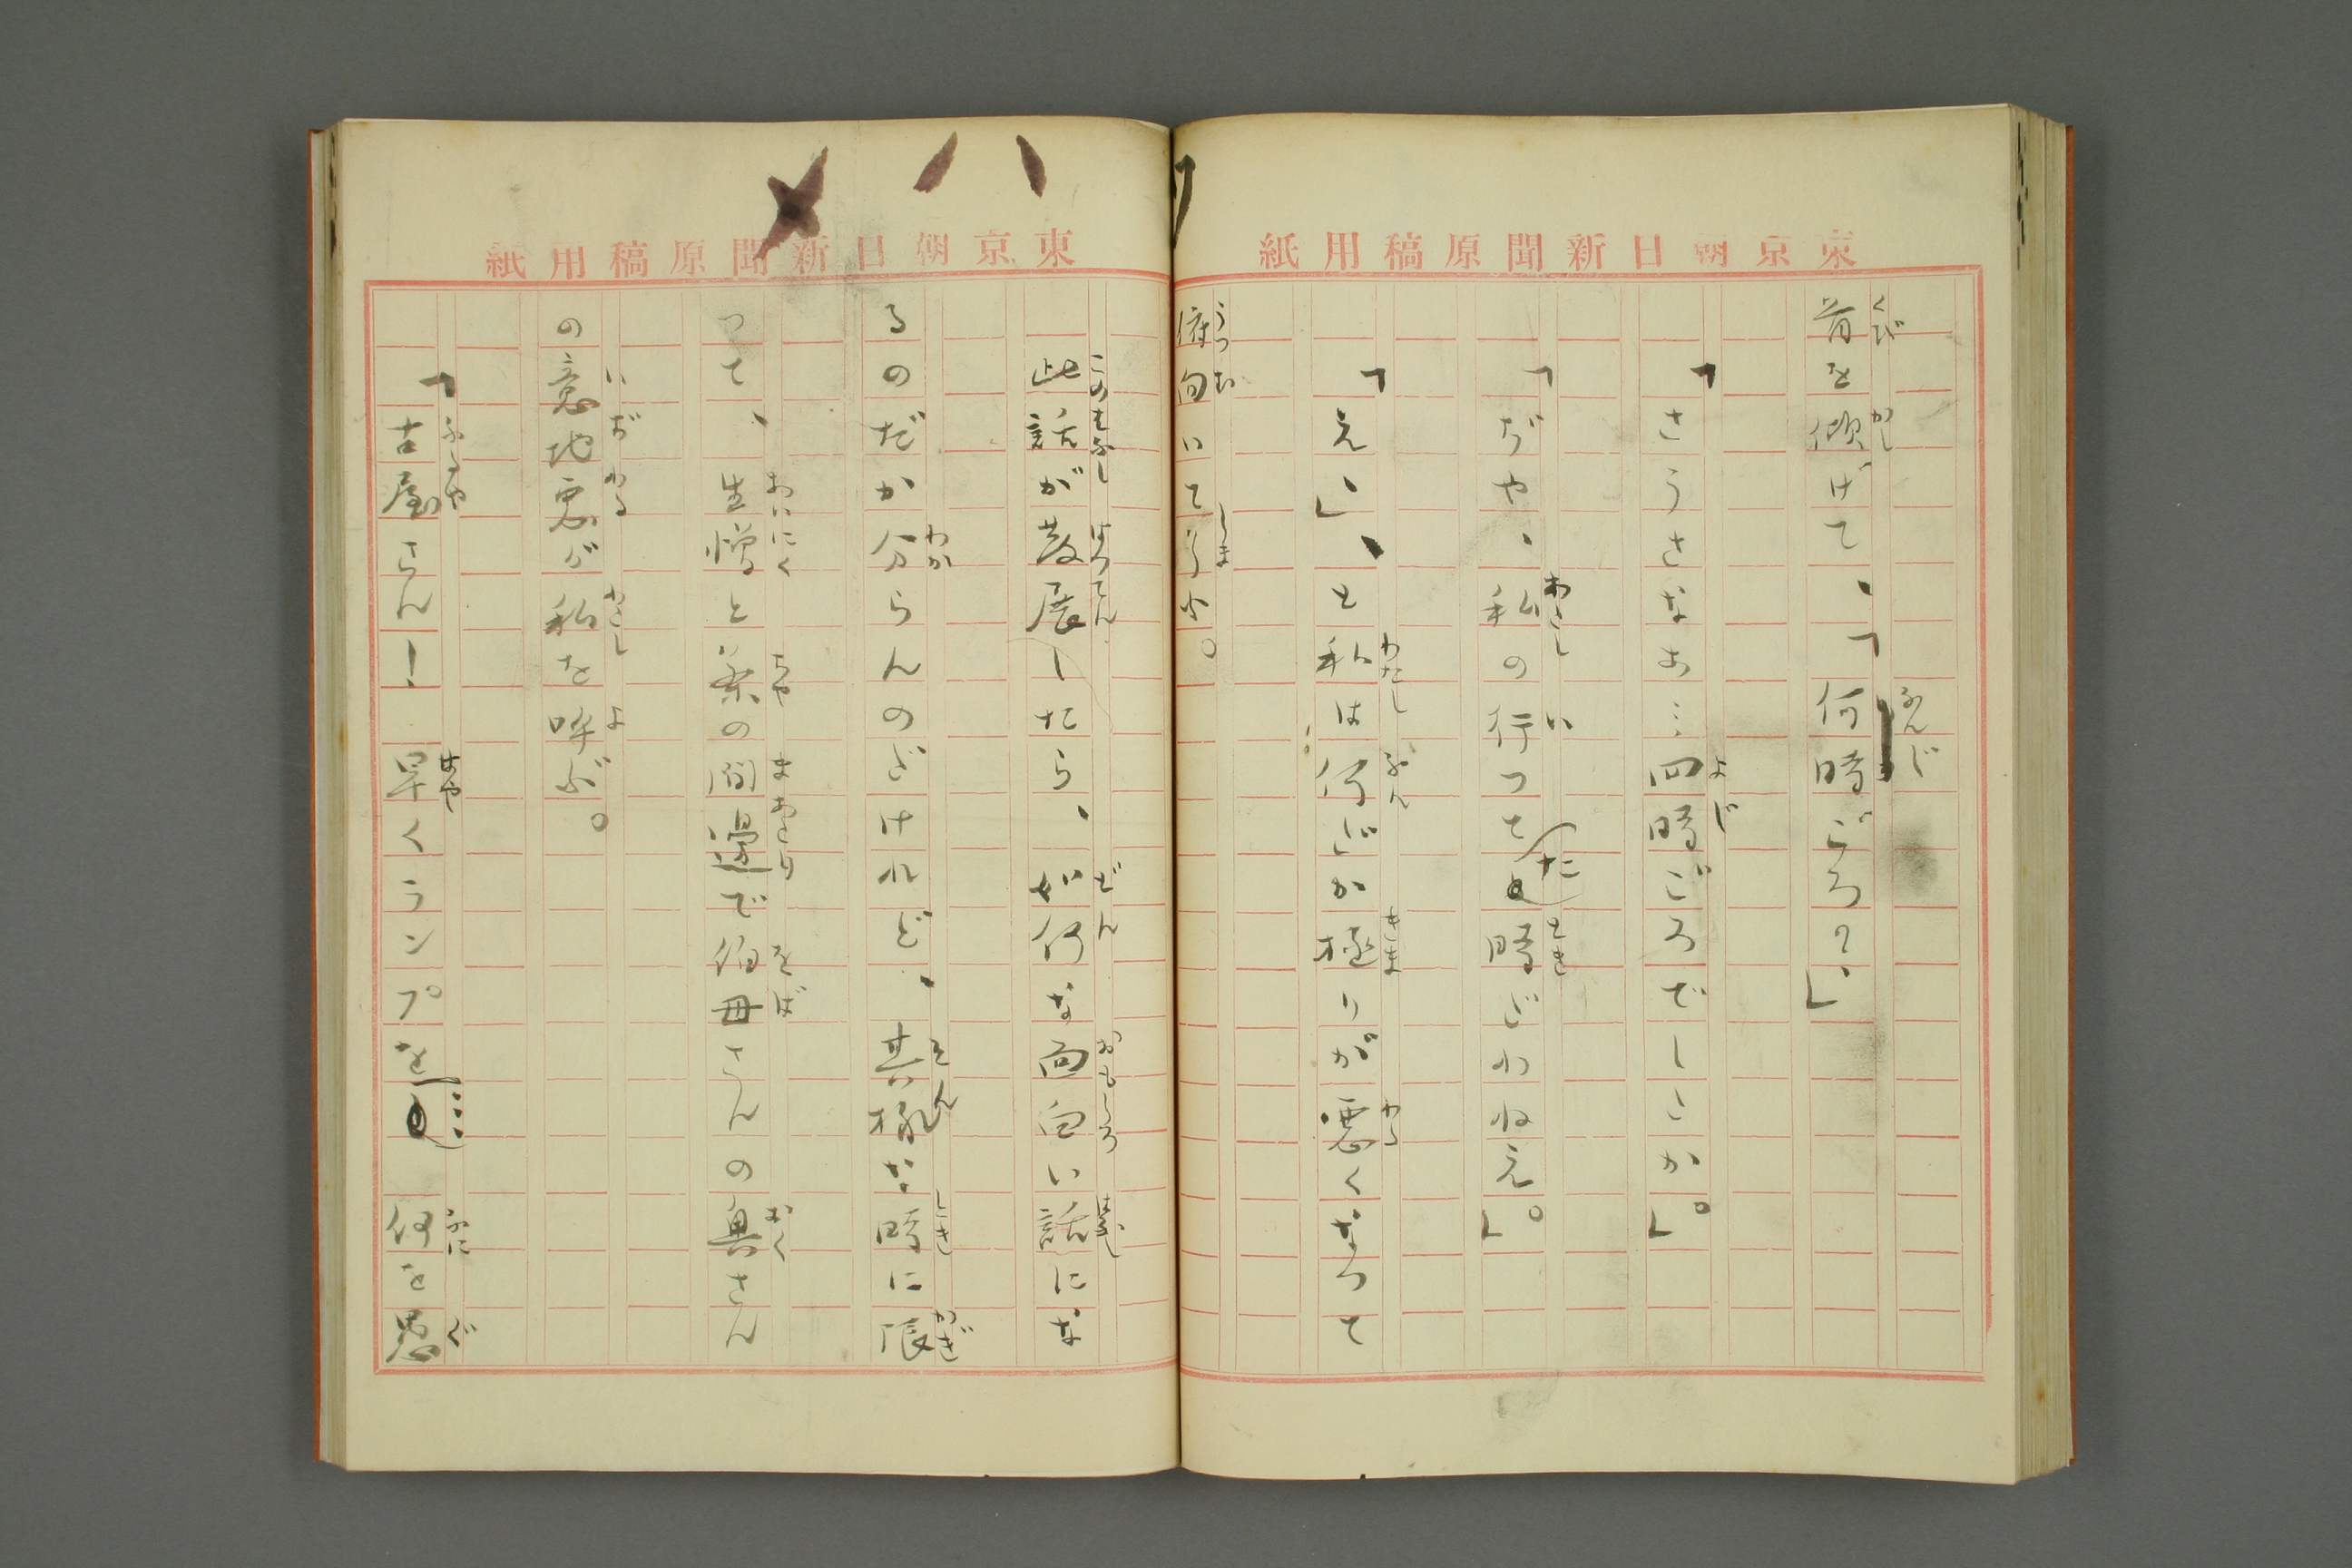 東京朝日新聞原稿用紙
首を傾げて、「何時ごろ?」
「さうさなあ…四時ごろでしたか。」
「ぢや、私の行つてた時だわねえ。」
「え、」、と私は何だか極りが悪くなつて
俯向いてしまふ。
東京朝日新聞原稿用紙
此話が発展したら、如何な面白い話にな
るのだか分らんのだけれど、其様な時に限
つて、生憎と茶の間辺で伯母さんの奥さん
の意地悪が私を呼ぶ。
「古屋さん! 早くランプを… 何を愚